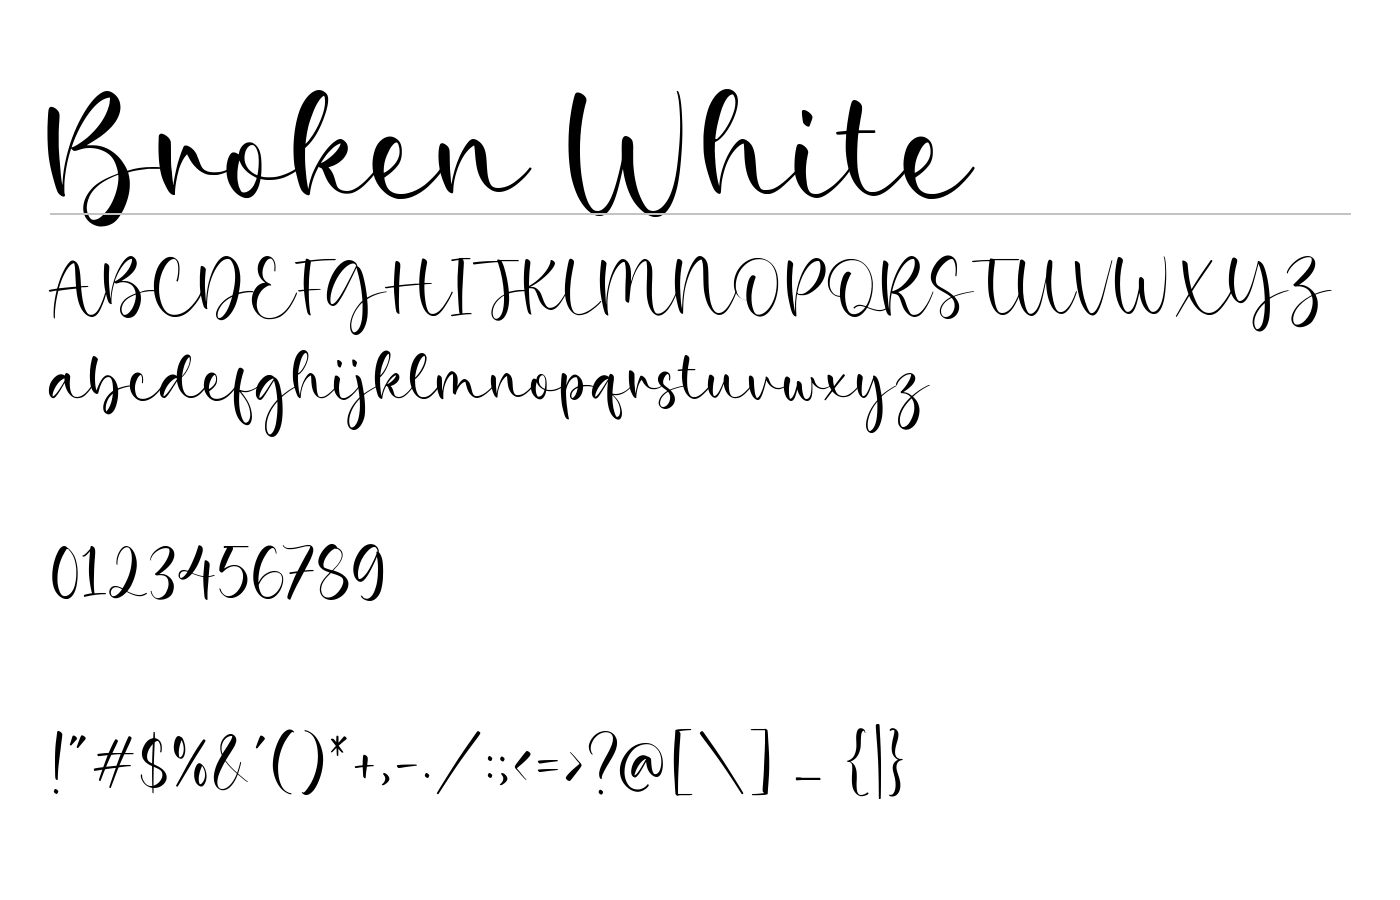 Broken White
ABCDEFGHIJKLMNOPQRSTUVWXYZ
abcdefghijklmnopqrstuvwxyz
0123456789
!"#$%&'()*+,-./:;<=>?@[\]_{|}